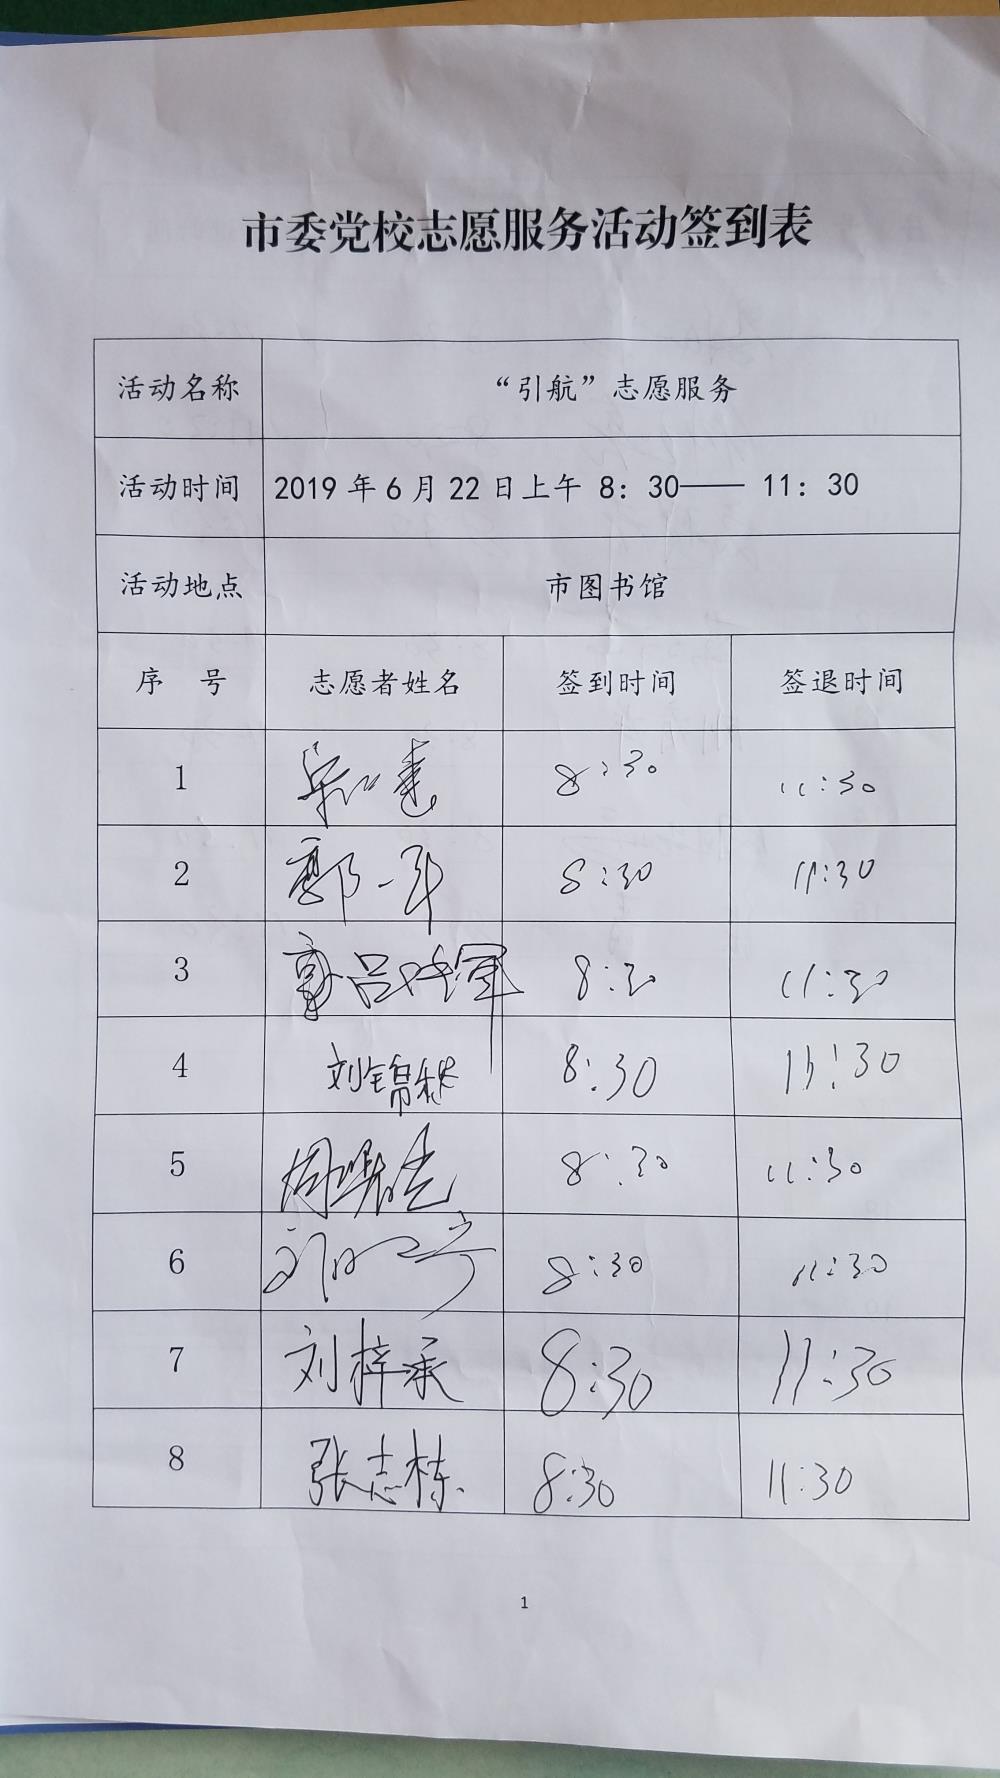 市委党校志愿服务活动签到表
活动名称 “引航”志愿服务
活动时间 2019年6月22日上午 8：30—— 11：30
活动地点 市图书馆
序 号 志愿者姓名 签到时间 签退时间
1 8:30 11:30
2 郭一 8:30 11:30
3 8:30 11:30
4 刘锦秋 8:30 11:30
5 周 8:30 11:30
6 8:30 11:30
7 刘梓承 8:30 11:30
8 张志栋 8:30 11:30
1